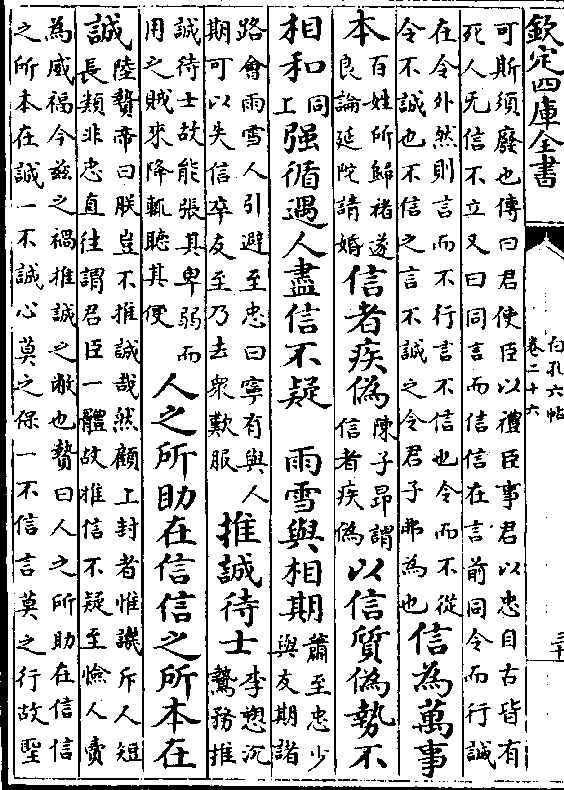 欽定四庫全書
白孔六帖
卷二十六
三十
可斯須廢也傳曰君使臣以禮臣事君以忠自古皆有
死人无信不立又曰同言而信信在言前同令而行誠
在令外然則言而不行言不信也令而不從
令不誠也不信之言不誠之令君子弗為也
信為萬事
本
百姓所歸褚遂
良論延陀請婚
信者疾偽
陳子昂謂
信者疾偽
以信質偽勢不
相和
同
上
强循遇人盡信不疑　雨雪與相期
蕭至忠少
與友期諸
路會雨雪人引避至忠曰寧有與人
期可以失信卒友至乃去衆歎服
推誠待士
李愬沉
鷙務推
誠待士故能張其卑弱而
用之賊來降輒聽其便
人之所助在信信之所本在
誠
陸贄帝曰朕豈不推誠哉然顧上封者惟譏斥人短
長類非忠直往謂君臣一體故推信不疑至憸人賣
為威福今兹之禍推誠之敝也贄曰人之所助在信信
之所本在誠一不誠心莫之保一不信言莫之行故聖